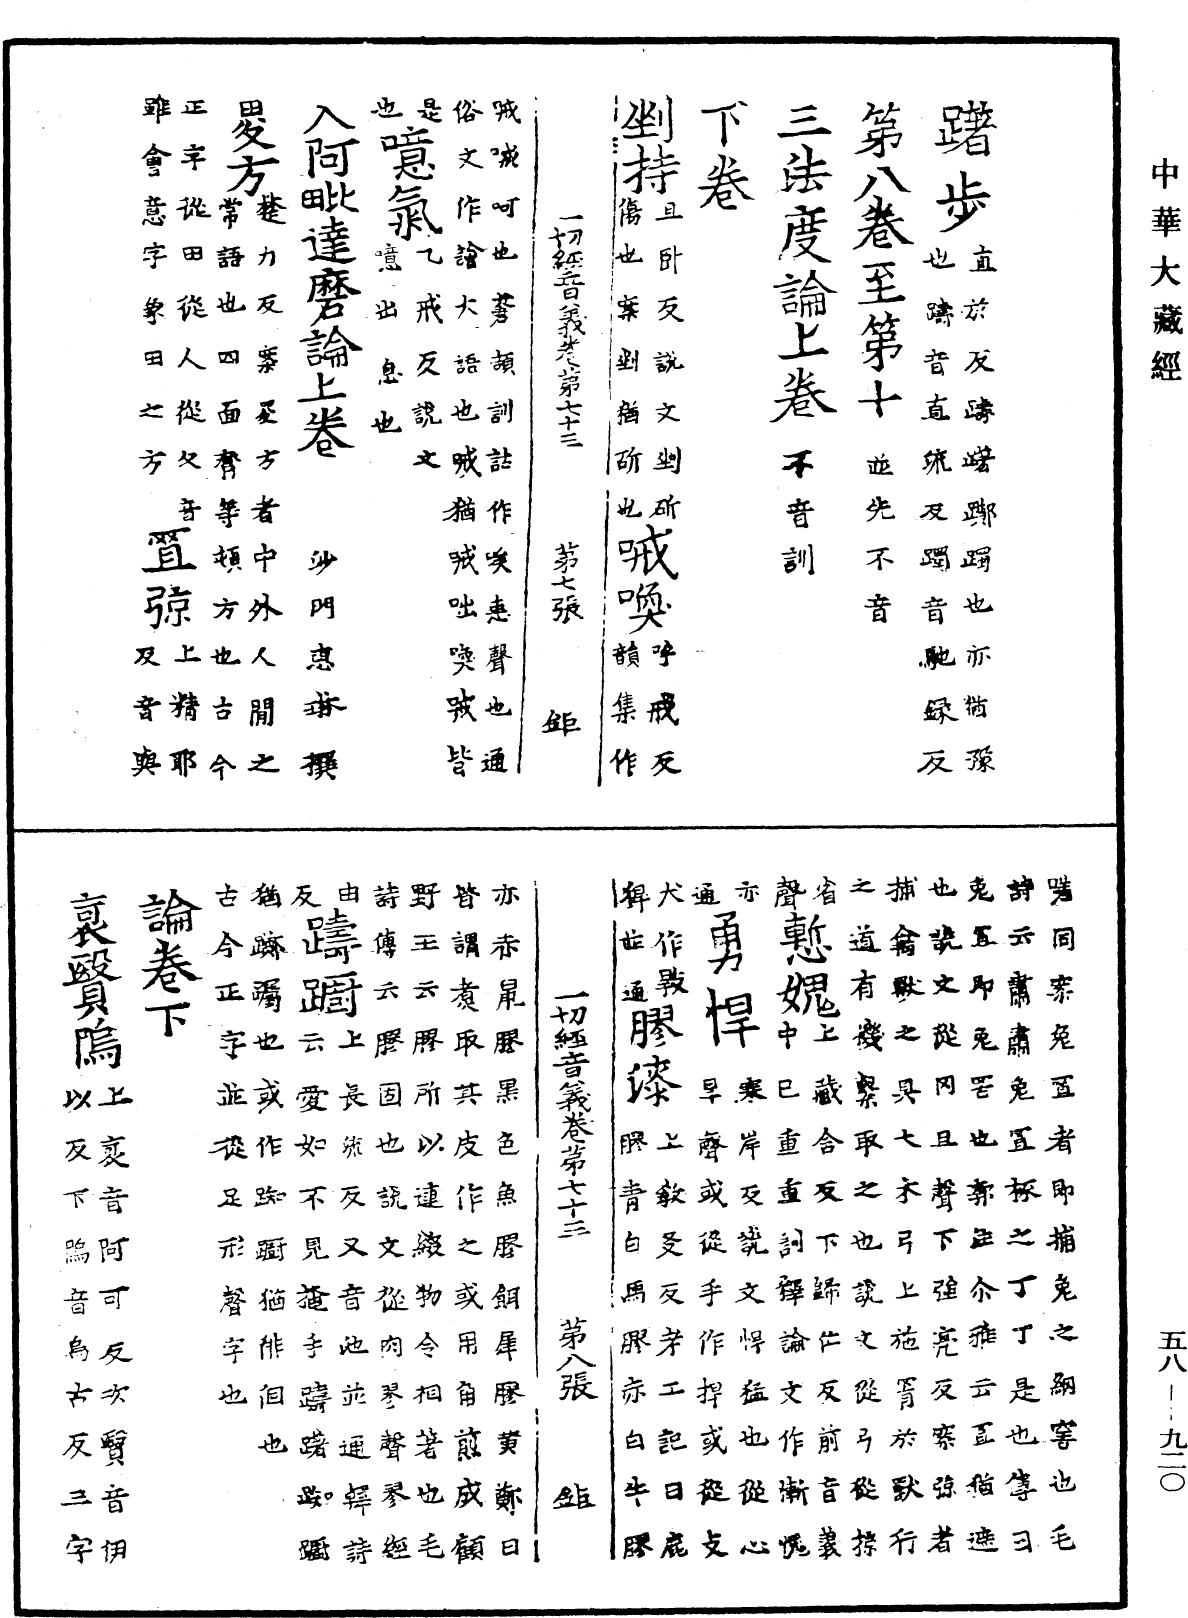 中華大藏經
躇步
直於反躊躇躑躅也亦猶豫
也躊音直流反躅音馳録反
第八卷至第十
並先不音
三法度論上卷
不音訓
下卷
剉持
且卧反說文剉斫
傷也案剉猶斫也
喊喚
呼戒反
韻集作
喊喊呵也蒼頡訓詁作唉恚聲也通
俗文作譮大語也喊猶喊咄喚喊皆
是乙戒反說文
也
噫氣
噫出息也
入阿毗達磨論上卷
沙門惠琳撰
畟方
楚力反案畟方者中外人間之
常語也四面齊等頓方也古今
正字從田從人從夂音上精耶
雖會意字象田之方
罝弶
及音與
一切經音義卷第七十三
第七張
鉅
罟同案兔罝者即捕兔之網䍐也毛
詩云肅肅兔罝椓之丁丁是也傳曰
兔罝即兔罟也郭注介雅云罝猶遮
也說文從冈且聲下強亮反案弶者
捕禽獸之具七木弓上施罥於獸行
之道有機繫取之也說文從弓從掠
省聲
慙愧
上藏合反下歸位反前音義
中已重重訓釋論文作漸愧
亦通
勇悍
寒岸反說文悍猛也從心
旱聲或從手作捍或從攴
犬作戰
猂並通
膠漆
上教爻反考工記曰鹿
膠青白馬膠赤白牛膠
亦赤鼠膠黑色魚膠餌犀膠黄鄭曰
皆謂煮取其皮作之或用角煎成顧
野王云膠所以連綴物令相著也毛
詩傳云膠固也說文從肉翏聲翏經
由反
躊躕
上長流反又音池並通韓詩
云愛如不見掩手躊躇踟躕
猶躑躅也或作踟躕猶俳佪也
古今正字並從足形聲字也
論卷下
裒賢鄔
上裒音阿可反次賢音伊
以反下鄔音烏古反三字
一切經音義卷第七十三
第八張
鉅
五八——九二〇